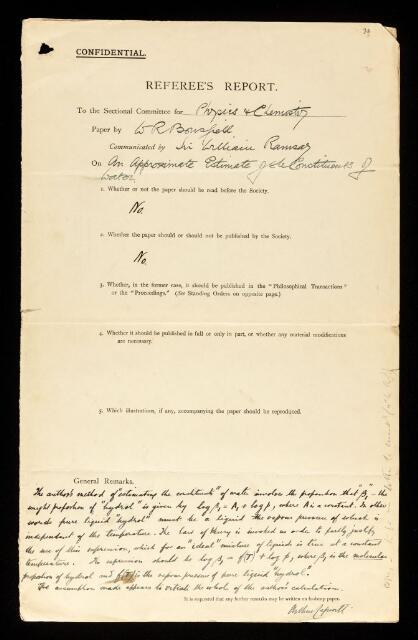 CONFIDENTIAL.
REFEREE'S REPORT.
To the Sectional Committee for Physics & Chemistry
Paper by W R Bousfield
Communicated by Sir William Ramsay
On An Approximate Estimate of the Constituents of
Water
1. Whether or not the paper should be read before the Society.
No.
2. Whether the paper should or should not be published by the Society.
No.
3. Whether, in the former case, it should be published in the "Philosophical Transactions"
or the "Proceedings." (See Standing Orders on opposite page.)
4. Whether it should be published in full or only in part, or whether any material modifications
are necessary.
5. Which illustrations, if any, accompanying the paper should be reproduced.
General Remarks.
The author's method of "estimating the constituents" of water involves the proposition that "β₁" – the
weight proportion of "hydrol" is given by log β₁ = A + log p, where A is a constant. In other
words pure liquid "hydrol" must be a liquid the vapour pressure of which is
independent of the temperature. The Law of Henry is invoked in order to partly justify
the use of this expression, which for an "ideal" mixture of liquids is true at a constant
temperature. The expression should be log β₁ = f(T) + log p, where β₁ is the molecular
proportion of hydrol and f(T) is the vapour pressure of pure liquid "hydrol".
The assumption made appears to vitiate the whole of the author's calculation.
It is requested that any further remarks may be written on foolscap paper.
Arthur Lapworth